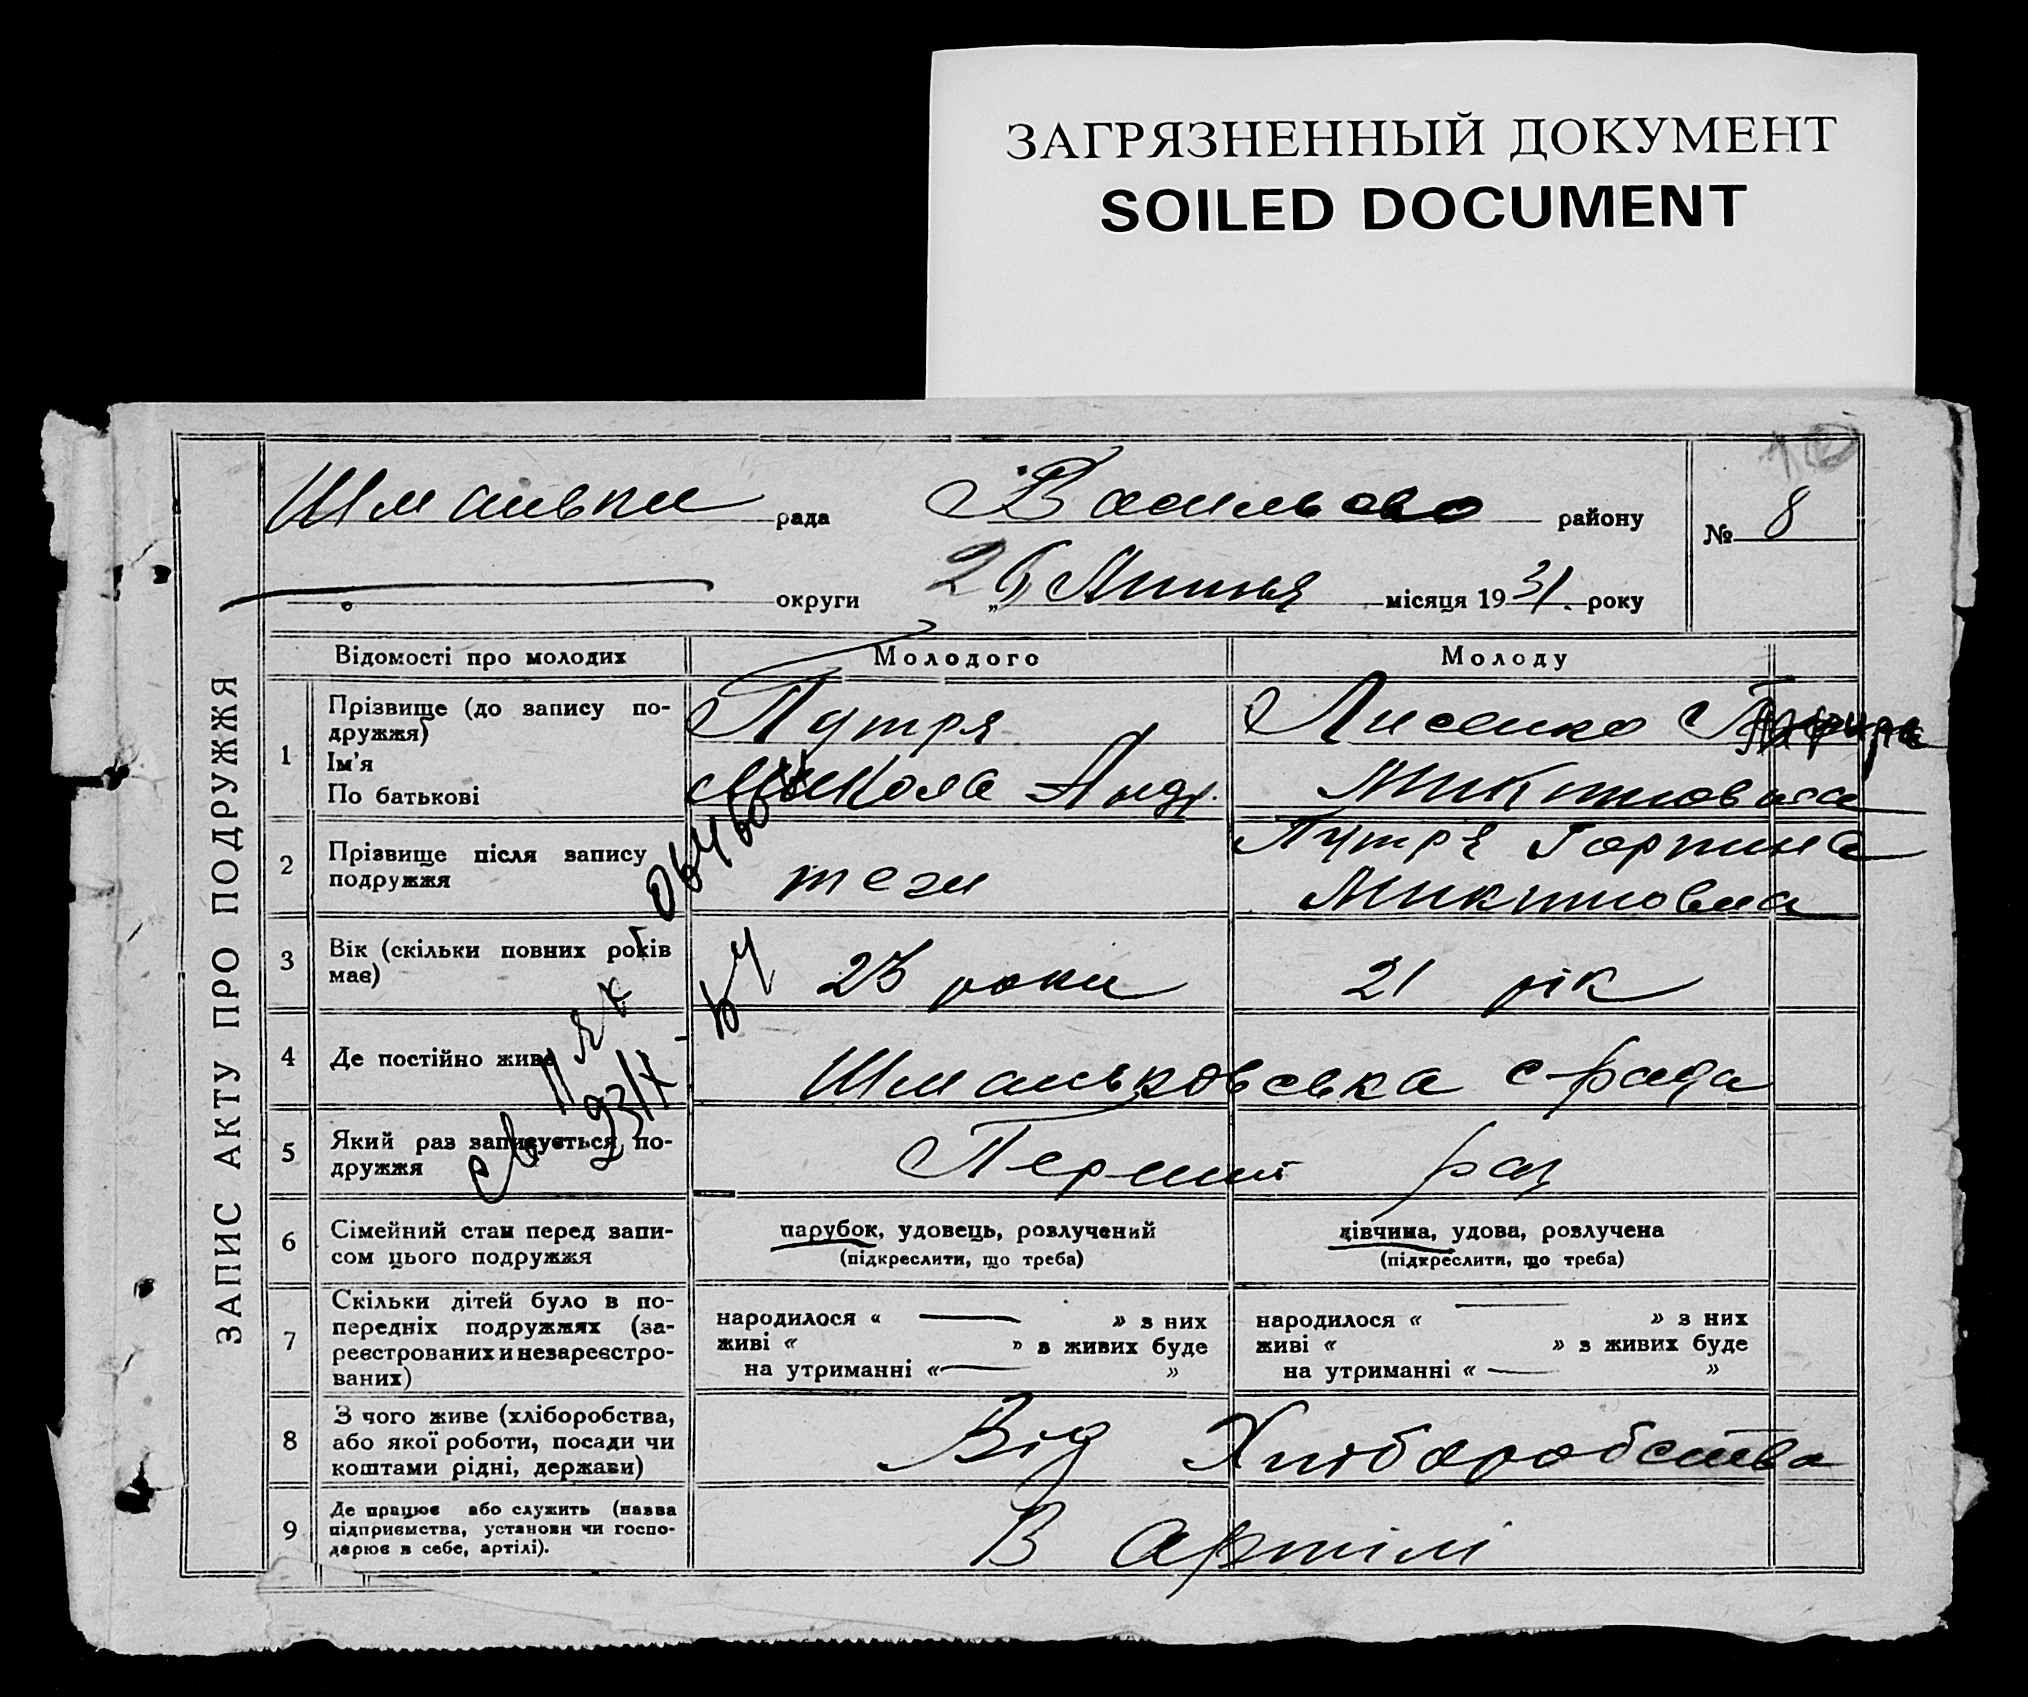 ЗАГРЯЗНЕННЫЙ ДОКУМЕНТ
SOILED DOCUMENT
ЗАПИС АКТУ ПРО ПОДРУЖЖЯ
рада району № 8
округи „26 Липня місяця 1931. року
Відомості про молодих Молодого Молоду
1 Прізвище (до запису по-
дружжя)
Ім'я
По батькові
Путря
Микола Андр.
Лисенко
2 Прізвище після запису
подружжя
Путря Горпина
3 Вік (скільки повних років
має)
23 роки 21 рік
4 Де постійно живе
Шманьковська с-рада
5 Який раз записується по-
дружжя
Перший раз
6 Сімейний стан перед запи-
сом цього подружжя
парубок, удовець, розлучений
(підкреслити, що треба)
дівчина, удова, розлучена
(підкреслити, що треба)
7 Скільки дітей було в по-
передніх подружжях (за-
реєстрованих и незареєстро-
ваних)
народилося « — » з них
живі « » з живих буде
на утриманні « — »
народилося « — » з них
живі « » з живих буде
на утриманні « — »
8 З чого живе (хліборобства,
або якої роботи, посади чи
коштами рідні, держави)
Від Хліборобства
9 Де працює або служить (назва
підприємства, установи чи госпо-
дарює в себе, артілі).
В артілі